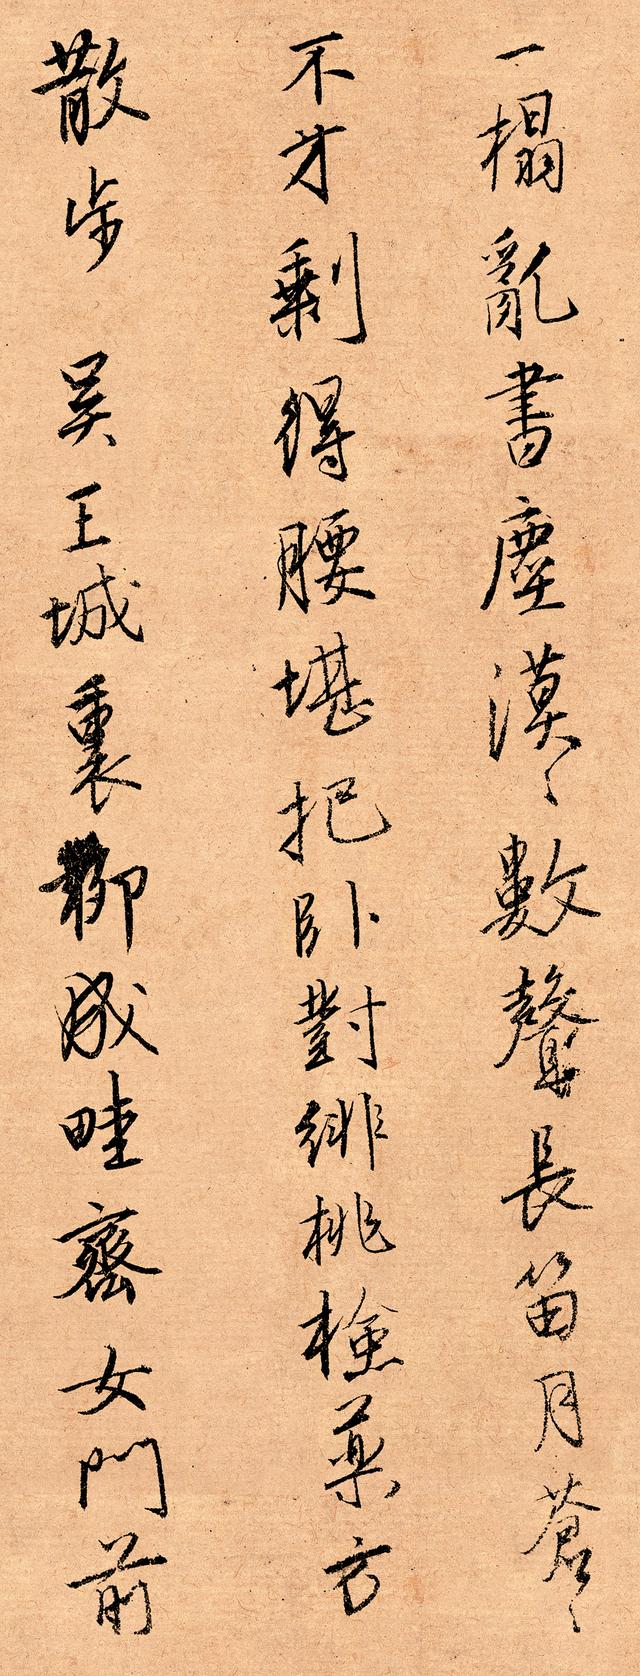 一榻亂書塵漠〻數聲長笛月蒼〻
不才剩得腰堪把臥對緋桃檢藥方
散步 吴王城裏柳成畦齊女門前